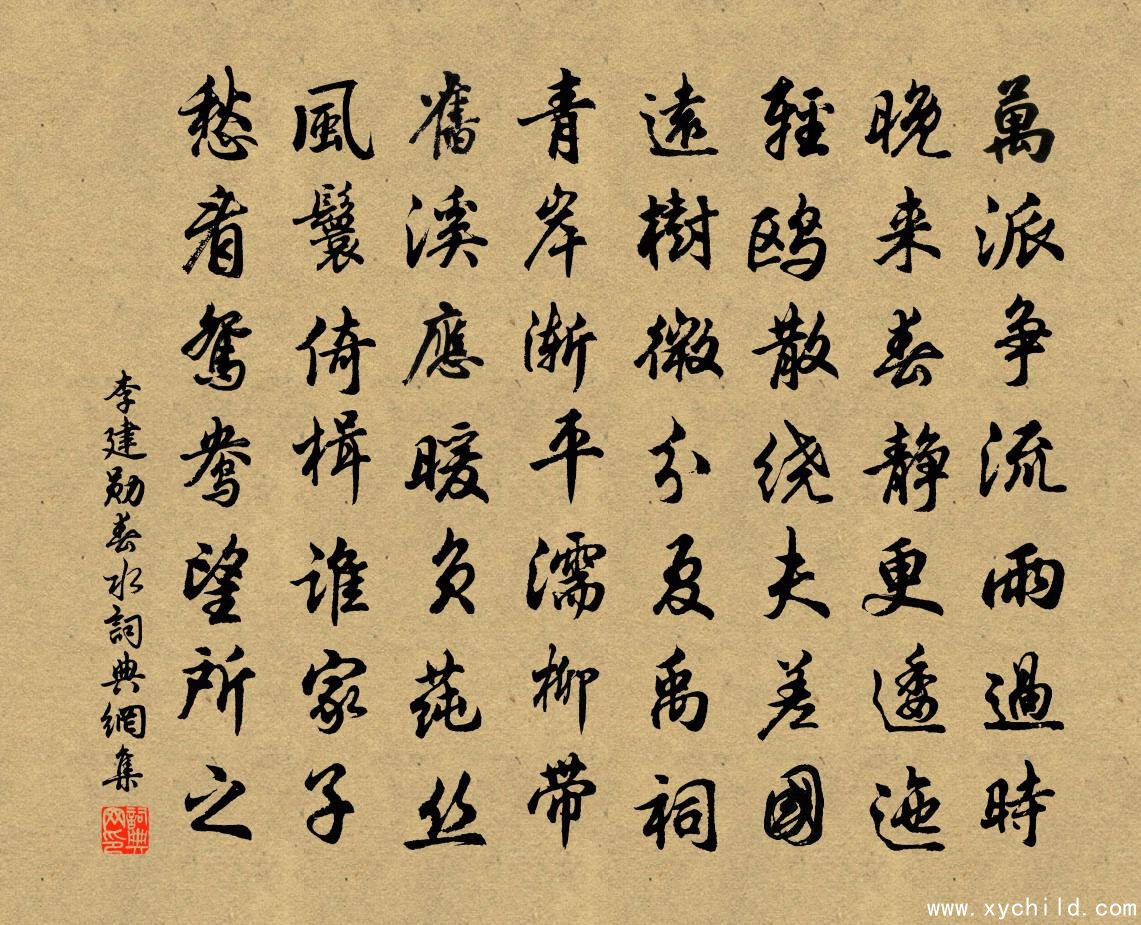 萬派争流雨過時
晚来春静更逶迤
輕鸥散绕夫差國
遠樹微分夏禹祠
青岸渐平濡柳带
舊溪應暖负莼丝
風鬟倚楫谁家子
愁看鸳鸯望所之
李建勋春水詞典網集
詞典網印
www.xychild.com